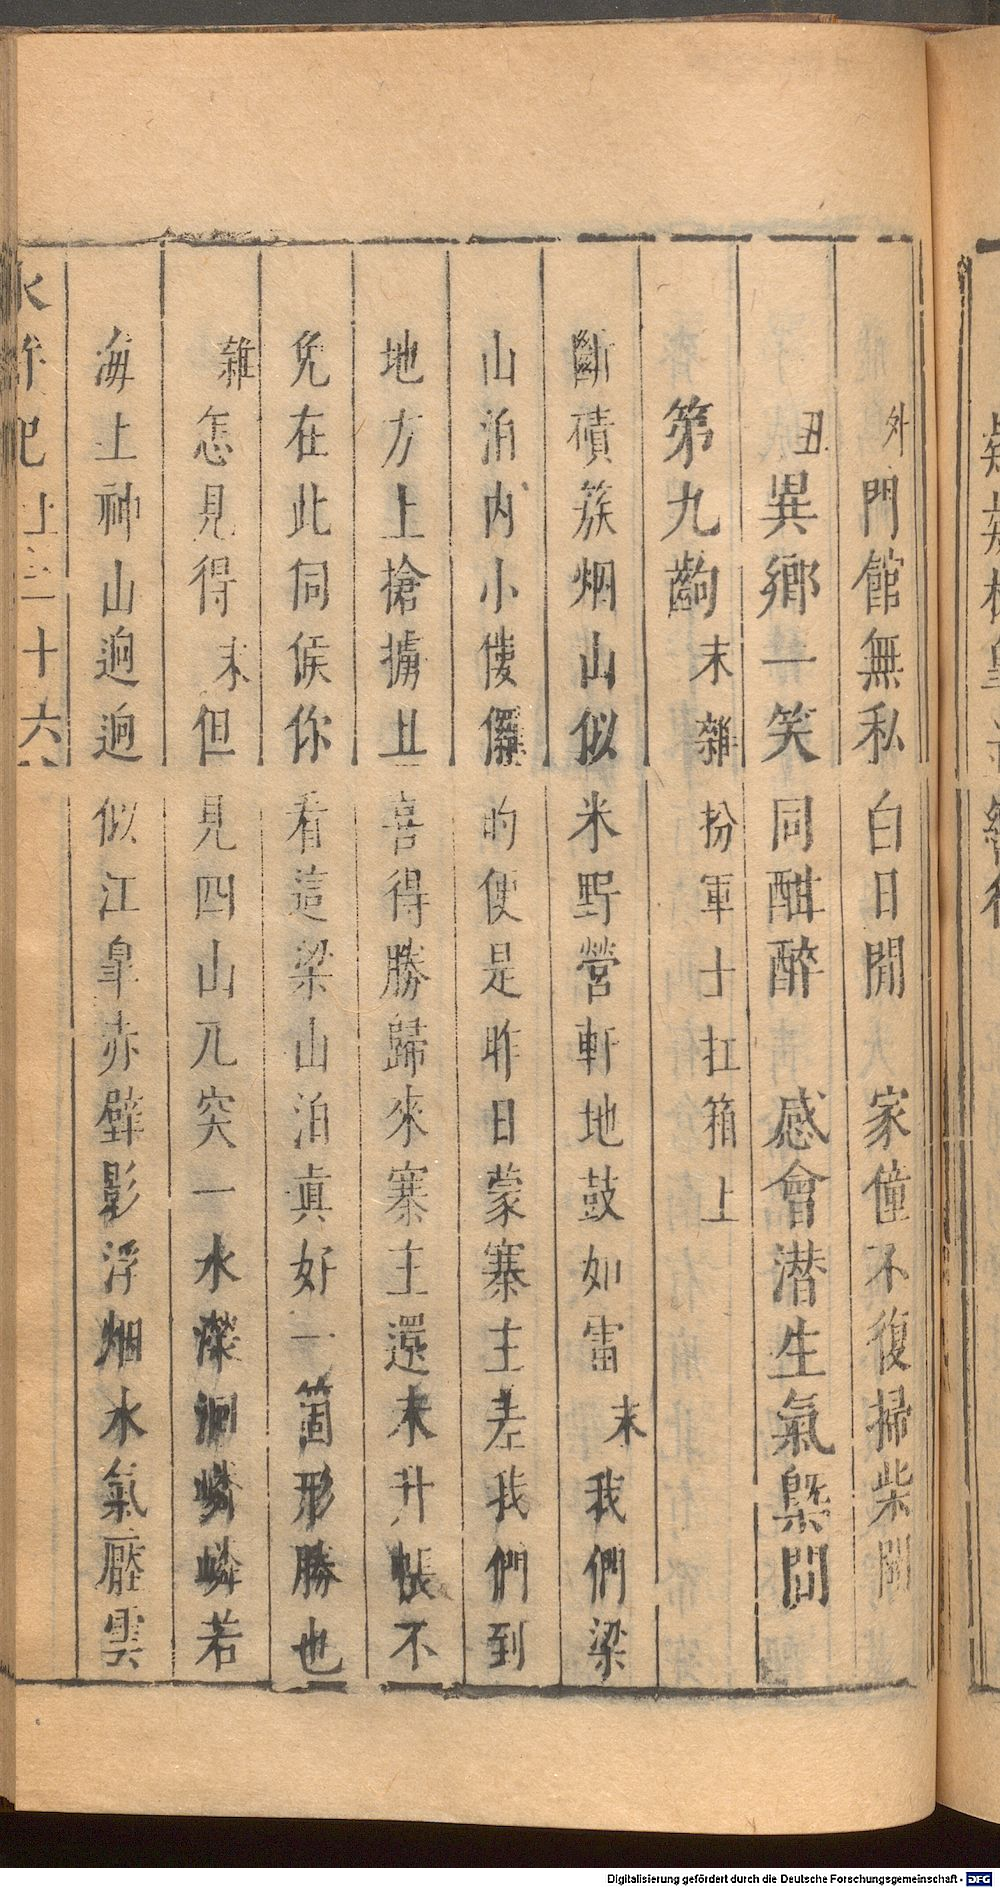 外門館無私白日閒　家僮不復掃柴關
丑異鄉一笑同酣醉　感會潜生氣槩間
第九齣末雜扮軍士扛箱上
斷磧簇烟山似米野營軒地鼓如雷末我們梁
山泊内小僂儸的便是昨日蒙寨主差我們到
地方上搶擄且喜得勝歸來寨主還未升帳不
免在此伺候你看這梁山泊眞好一箇形勝也
雜怎見得末但見四山兀突一水瀠洄嶙嶙若
海上神山迥迥似江皐赤壁影浮烟水氣壓雲
水滸記 十六
Digitalisierung gefördert durch die Deutsche Forschungsgemeinschaft - DFG